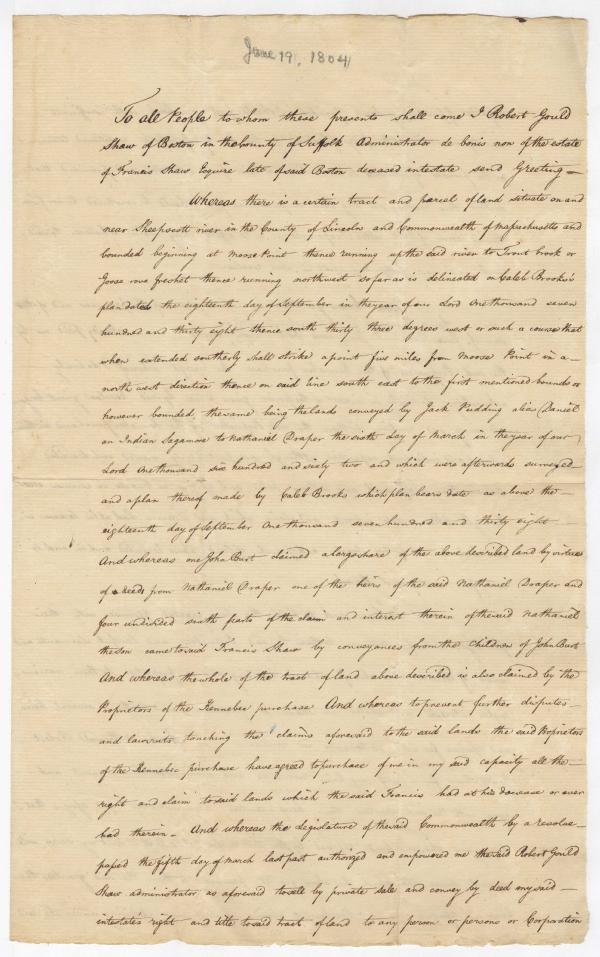 June 19, 1804
To all People to whom these presents shall come I Robert Gould
Shaw of Boston in the County of Suffolk Administrator de bonis non of the estate
of Francis Shaw Esquire late of said Boston deceased intestate send Greeting —
Whereas there is a certain tract and parcel of land situate on and
near Sheepscott river in the County of Lincoln and Commonwealth of Massachusetts and
bounded beginning at Moose Point thence running up the said river to Trout brook or
Goose rove freshet thence running northwest so far as is delineated on Caleb Brooks's
plan dated the eighteenth day of September in the year of our Lord One thousand seven
hundred and thirty eight thence south thirty three degrees west or such a course that
when extended southerly shall strike a point five miles from Moose Point in a —
north west direction thence on said line south east to the first mentioned bounds or
however bounded the same being the lands conveyed by Jack Pudding alias Daniel
an Indian Sagamore to Nathaniel Draper the sixth day of March in the year of our
Lord One thousand six hundred and sixty two and which were afterwards surveyed —
and a plan thereof made by Caleb Brooks which plan bears date as above the —
eighteenth day of September One thousand seven hundred and thirty eight
And whereas one John Burt claimed a large share of the above described land by virtue
of a deed from Nathaniel Draper one of the heirs of the said Nathaniel Draper and
four undivided sixth parts of the claim and interest therein of the said Nathaniel
the son came to said Francis Shaw by conveyances from the children of John Burt
And whereas the whole of the tract of land above described is also claimed by the
Proprietors of the Kennebec purchase And whereas to prevent further disputes
and lawsuits touching the claims aforesaid to the said lands the said Proprietors
of the Kennebec purchase have agreed to purchase of me in my said capacity all the —
right and claim to said lands which the said Francis had at his decease or ever
had therein — And whereas the Legislature of the said Commonwealth by a resolve
passed the fifth day of March last past authorized and empowered me the said Robert Gould
Shaw administrator as aforesaid to sell by private sale and convey by deed my said —
intestate's right and title to said tract of land to any person or persons or Corporation